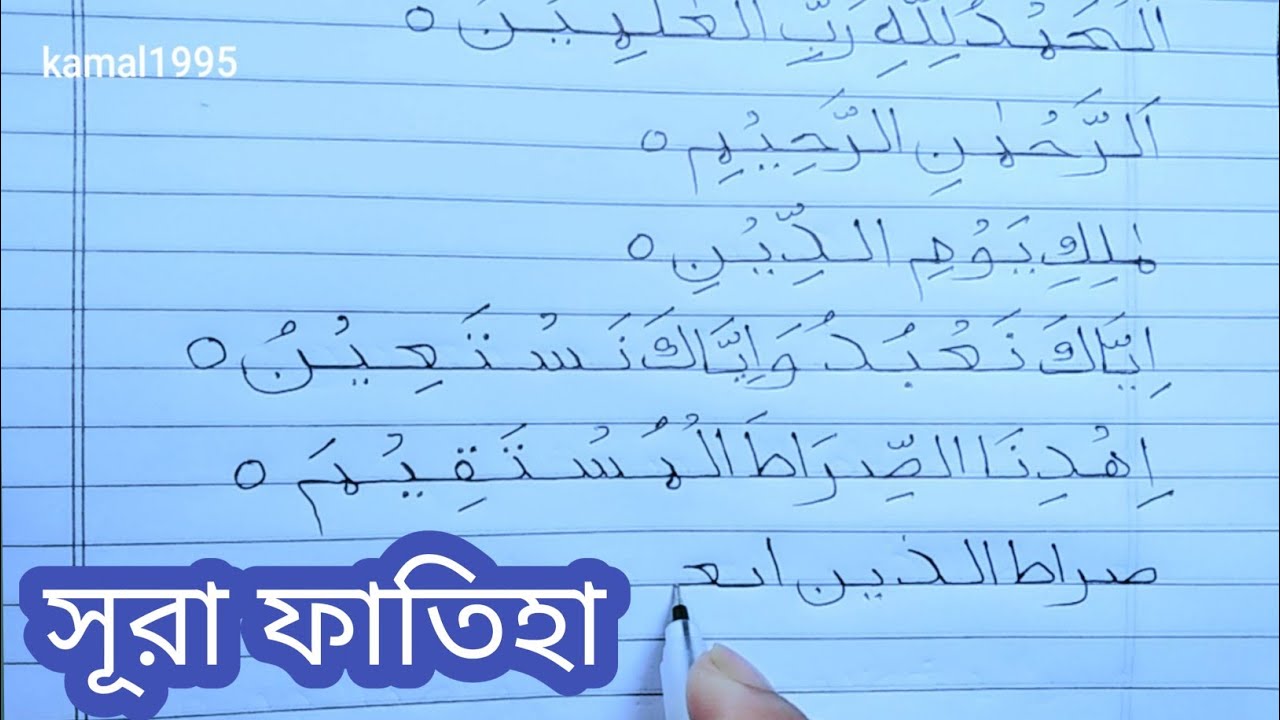 اَلْحَمْدُ لِلّٰهِ رَبِّ الْعٰلَمِيْنَ ○
kamal1995
اَلرَّحْمٰنِ الرَّحِيْمِ ○
مٰلِكِ يَوْمِ الدِّيْنِ ○
اِيَّاكَ نَعْبُدُ وَاِيَّاكَ نَسْتَعِيْنُ ○
اِهْدِنَا الصِّرَاطَ الْمُسْتَقِيْمَ ○
صراط الذين
সূরা ফাতিহা